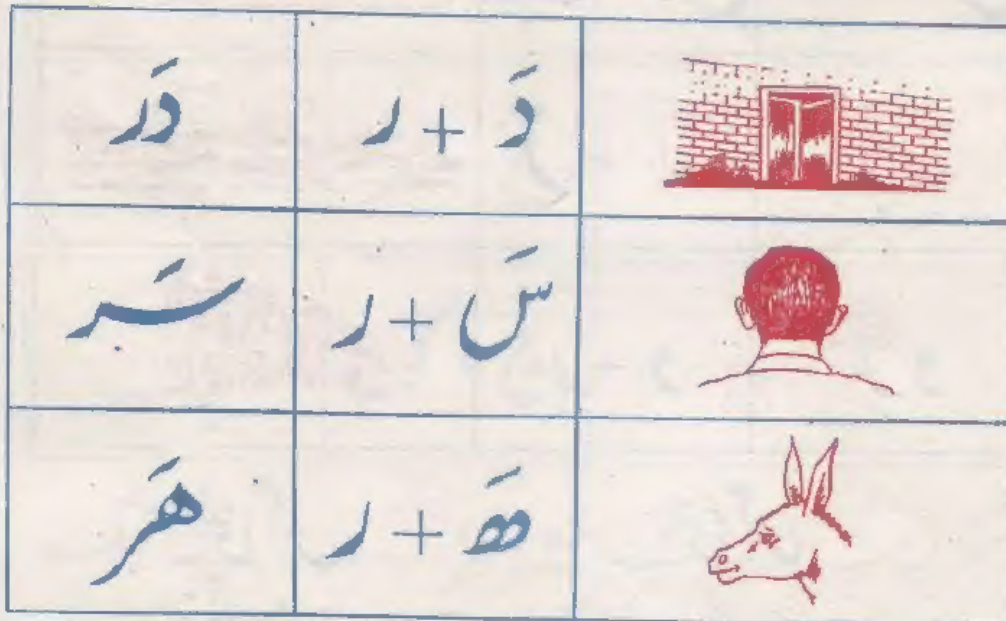 دَ + ر دَر
سَ + ر سَر
هَ + ر هَر